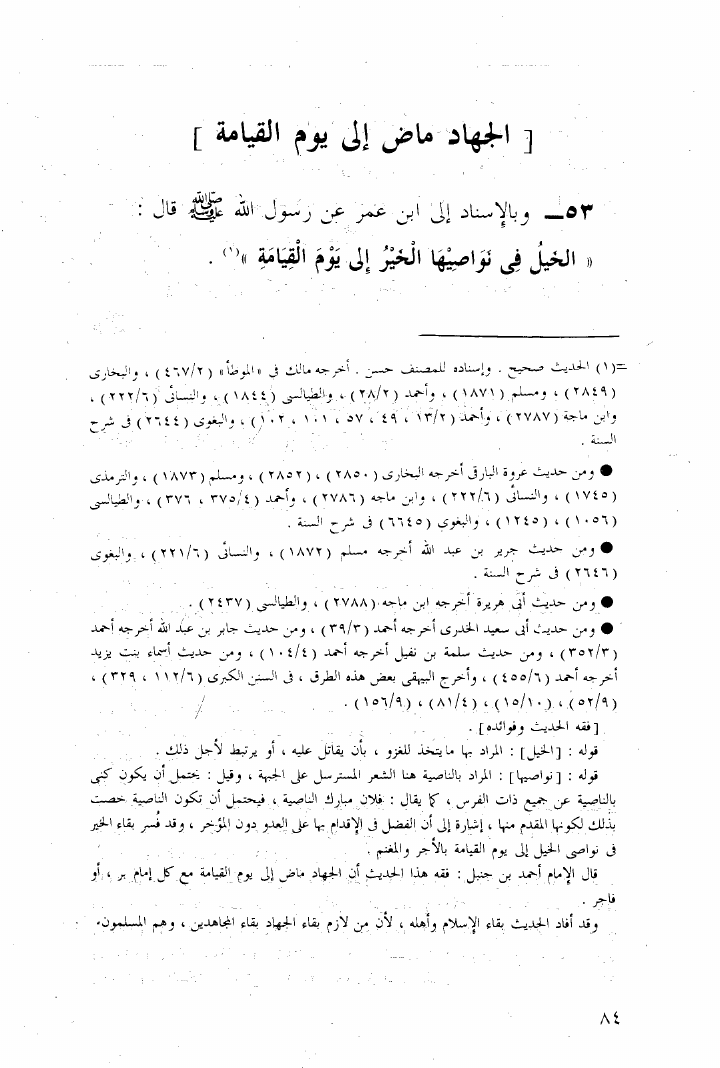 [ الجهاد ماض إلى يوم القيامة ]
٥٣ـــ وبالإسناد إلى ابن عمر عن رسول الله ﷺ قال :
« الخيلُ فِى نَوَاصِيْهَا الْخَيْرُ إِلى يَوْمَ الْقِيَامَةِ »(١) .
=(١) الحديث صحيح . وإسناده للمصنف حسن . أخرجه مالك فى «الموطأ» (٤٦٧/٢) ، والبخارى
(٢٨٤٩) ، ومسلم (١٨٧١) ، وأحمد (٢٨/٢) ، والطيالسى (١٨٤٤) ، والنسائى (٢٢٢/٦) ،
وابن ماجة (٢٧٨٧) ، وأحمد (١٣/٢ ، ٤٩ ، ٥٧ ، ١٠١ ، ١٠٢) ، والبغوى (٢٦٤٤) فى شرح
السنة .
● ومن حديث عروة البارق أخرجه البخارى (٢٨٥٠) ، (٢٨٥٢) ، ومسلم (١٨٧٣) ، والترمذى
(١٧٤٥) ، والنسائى (٢٢٢/٦) ، وابن ماجه (٢٧٨٦) ، وأحمد (٣٧٥/٤ ، ٣٧٦) ، والطيالسى
(١٠٥٦) ، (١٢٤٥) ، والبغوى (٦٦٤٥) فى شرح السنة .
● ومن حديث جرير بن عبد الله أخرجه مسلم (١٨٧٢) ، والنسائى (٢٢١/٦) ، والبغوى
(٢٦٤٦) فى شرح السنة .
● ومن حديث أبى هريرة أخرجه ابن ماجه (٢٧٨٨) ، والطيالسى (٢٤٣٧) .
● ومن حديث أبى سعيد الخدرى أخرجه أحمد (٣٩/٣) ، ومن حديث جابر بن عبد الله أخرجه أحمد
(٣٥٢/٣) ، ومن حديث سلمة بن نفيل أخرجه أحمد (١٠٤/٤) ، ومن حديث أسماء بنت يزيد
أخرجه أحمد (٤٥٥/٦) ، وأخرج البيهقى بعض هذه الطرق ، فى السنن الكبرى (١١٢/٦ ، ٣٢٩) ،
(٥٢/٩) ، (١٥/١٠) ، (٨١/٤) ، (١٥٦/٩) .
[فقه الحديث وفوائده] .
قوله : [الخيل] : المراد بها ما يتخذ للغزو ، بأن يقاتل عليه ، أو يرتبط لأجل ذلك .
قوله : [نواصيها] : المراد بالناصية هنا الشعر المسترسل على الجبهة ، وقيل : يحتمل أن يكون كنى
بالناصية عن جميع ذات الفرس ، كما يقال : فلان مبارك الناصية ، فيحتمل أن تكون الناصية خصت
بذلك لكونها المقدم منها ، إشارة إلى أن الفضل فى الإقدام بها على العدو دون المؤخر ، وقد فُسر بقاء الخير
فى نواصى الخيل إلى يوم القيامة بالأجر والمغنم .
قال الإمام أحمد بن حنبل : فقه هذا الحديث أن الجهاد ماض إلى يوم القيامة مع كل إمام بر ، أو
فاجر .
وقد أفاد الحديث بقاء الإسلام وأهله ، لأن من لازم بقاء الجهاد بقاء المجاهدين ، وهم المسلمون.
٨٤